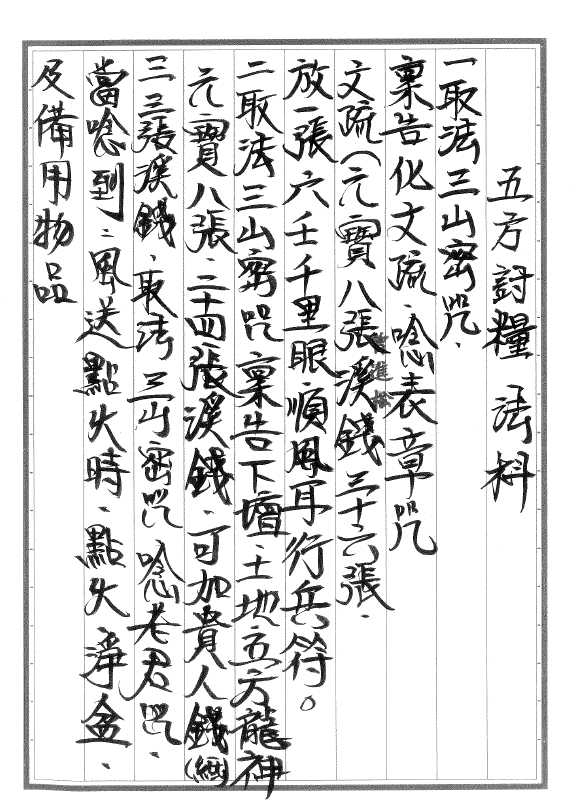 五方討糧法科
一取法三山密咒、
稟告化文疏、唸表章咒
文疏(元寶八張溪錢三十六張、
放一張六壬千里眼順風耳行兵符。
二取法三山密咒稟告下壇、土地五方龍神
元寶八張、二十四張溪錢、可加貴人錢
三三張溪錢、取法三山密咒唸老君咒、
當唸到:風送點火時、點火、淨盆、
及備用物品